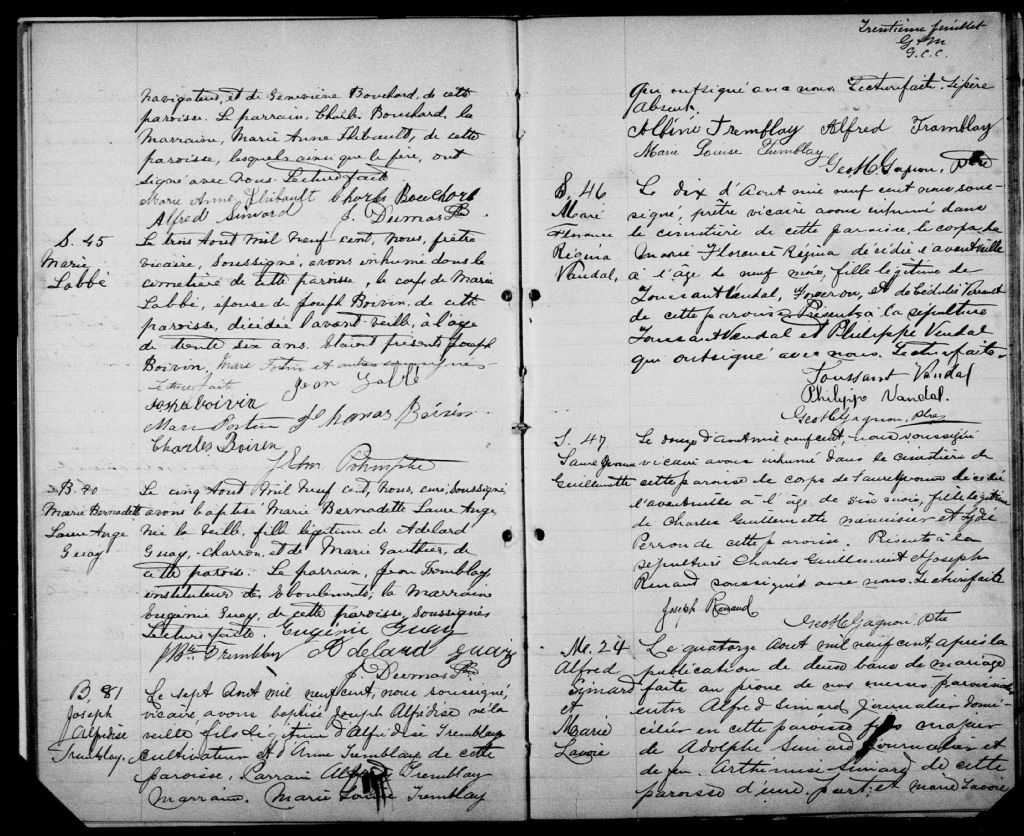 navigateur, et de Geneviève Bouchard, de cette
paroisse. Le parrain, Charles Bouchard, la
Marraine, Marie Anne Thibeault, de cette
paroisse, lesquels ainsi que le père, ont
signé avec nous. Lecture faite
Marie Anne Thibault Charles Bouchard
Alfred Simard J. Dumas Ptre
S. 45
Marie
Labbé
Le trois Aout mil neuf cent, Nous, prêtre
vicaire, soussigné, avons inhumé dans le
cimetière de cette paroisse, le corps de Marie
Labbé, epouse de Joseph Boivin, de cette
paroisse, décédée l'avant-veille, à l'âge
de trente six ans. Etaient présents Joseph
Boivin, Marc Fortin et autres soussignés
Lecture faite Jean Labbé
Joseph Boivin
Marc Fortin Thomas Boivin
Charles Boiven
B. 80
Marie Bernadette
Laure Ange
Guay
Le cinq Aout Mil Neuf cent, Nous, curé, soussigné,
avons baptisé Marie Bernadette Laure Ange
née la veille, fille légitime de Adelard
Guay, charron, et de Marie Gauthier, de
cette paroisse. Le parrain, Jean Tremblay,
instituteur des Eboulements, la Marraine
Eugénie Guay, de cette paroisse, soussignés
Lecture faite. Eugénie Guay
J Bte Tremblay Adelard Guay
J. Dumas Ptre
B 81
Joseph
Alphidise
Tremblay.
Le sept Aout mil neuf cent, nous soussigné,
vicaire avons baptisé Joseph Alphidise né la
veille fils légitime d'Alfidise Tremblay
cultivateur et d'Anne Tremblay de cette
paroisse, Parrain Alfred Tremblay
Marraine. Marie Louise Tremblay
Trentième feuillet
G & M
G.C.C.
qui ont signé avec nous. Lecture faite. Le père
absent.
Albiné Tremblay Alfred Tramblay
Marie Louise Tremblay
Geo M Gagnon, Ptre
S. 46
Marie
Florence
Régina
Vandal,
Le dix d'Aout mil neuf cent nous sous-
signé, prêtre vicaire avons inhumé dans
le cimetière de cette paroisse, le corps de
Marie Florence Régina décédée l'avant veille
à l'âge de neuf mois, fille légitime de
Toussant Vandal, Forgeron, et de Cédulie
de cette paroisse Présents à la sépulture
Toussant Vandal et Philippe Vandal
qui ont signé avec nous. Lecture faite.
Toussaint Vandal
Philippe Vandal.
Geo M Gagnon, Ptre
S. 47
Laure Yvonne
Guillemette
Le douze d'Aout mil neuf cent, nous soussigné
vicaire avons inhumé dans le cimetière de
cette paroisse le corps de Laure Yvonne décédée
l'avant veille à l'âge de six mois, fille légitime
de Charles Guillemette menuisier et Lydie
Perron de cette paroisse. Présents à la
sépulture Charles Guillemette et Joseph
Renaud soussignés avec nous. Lecture faite
Joseph Renaud
Geo M Gagnon Ptre
M. 24
Alfred
Simard
et
Marie
Lavoie
Le quatorze Aout mil neuf cent, après la
publication de deux bans de mariage
faite au prône de nos messes paroissiales
entre Alfred Simard Journalier domi-
cilié en cette paroisse fils majeur
de Adolphe Simard Journalier et
de feu Arthémise Simard de cette
paroisse d'une part; et Marie Lavoie